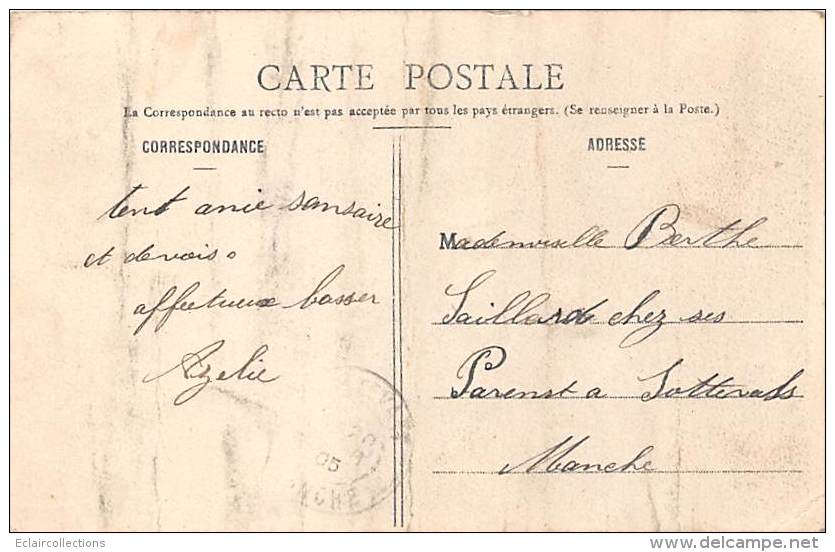 CARTE POSTALE
La Correspondance au recto n'est pas acceptée par tous les pays étrangers. (Se renseigner à la Poste.)
CORRESPONDANCE
tent anie sansaire
et devois
affectueux basser
Azelie
ADRESSE
Mademoiselle Berthe
Saillard chez ses
Parenst a Sottevals
Manche
05
NCHE
Eclaircollections
www.delcampe.net